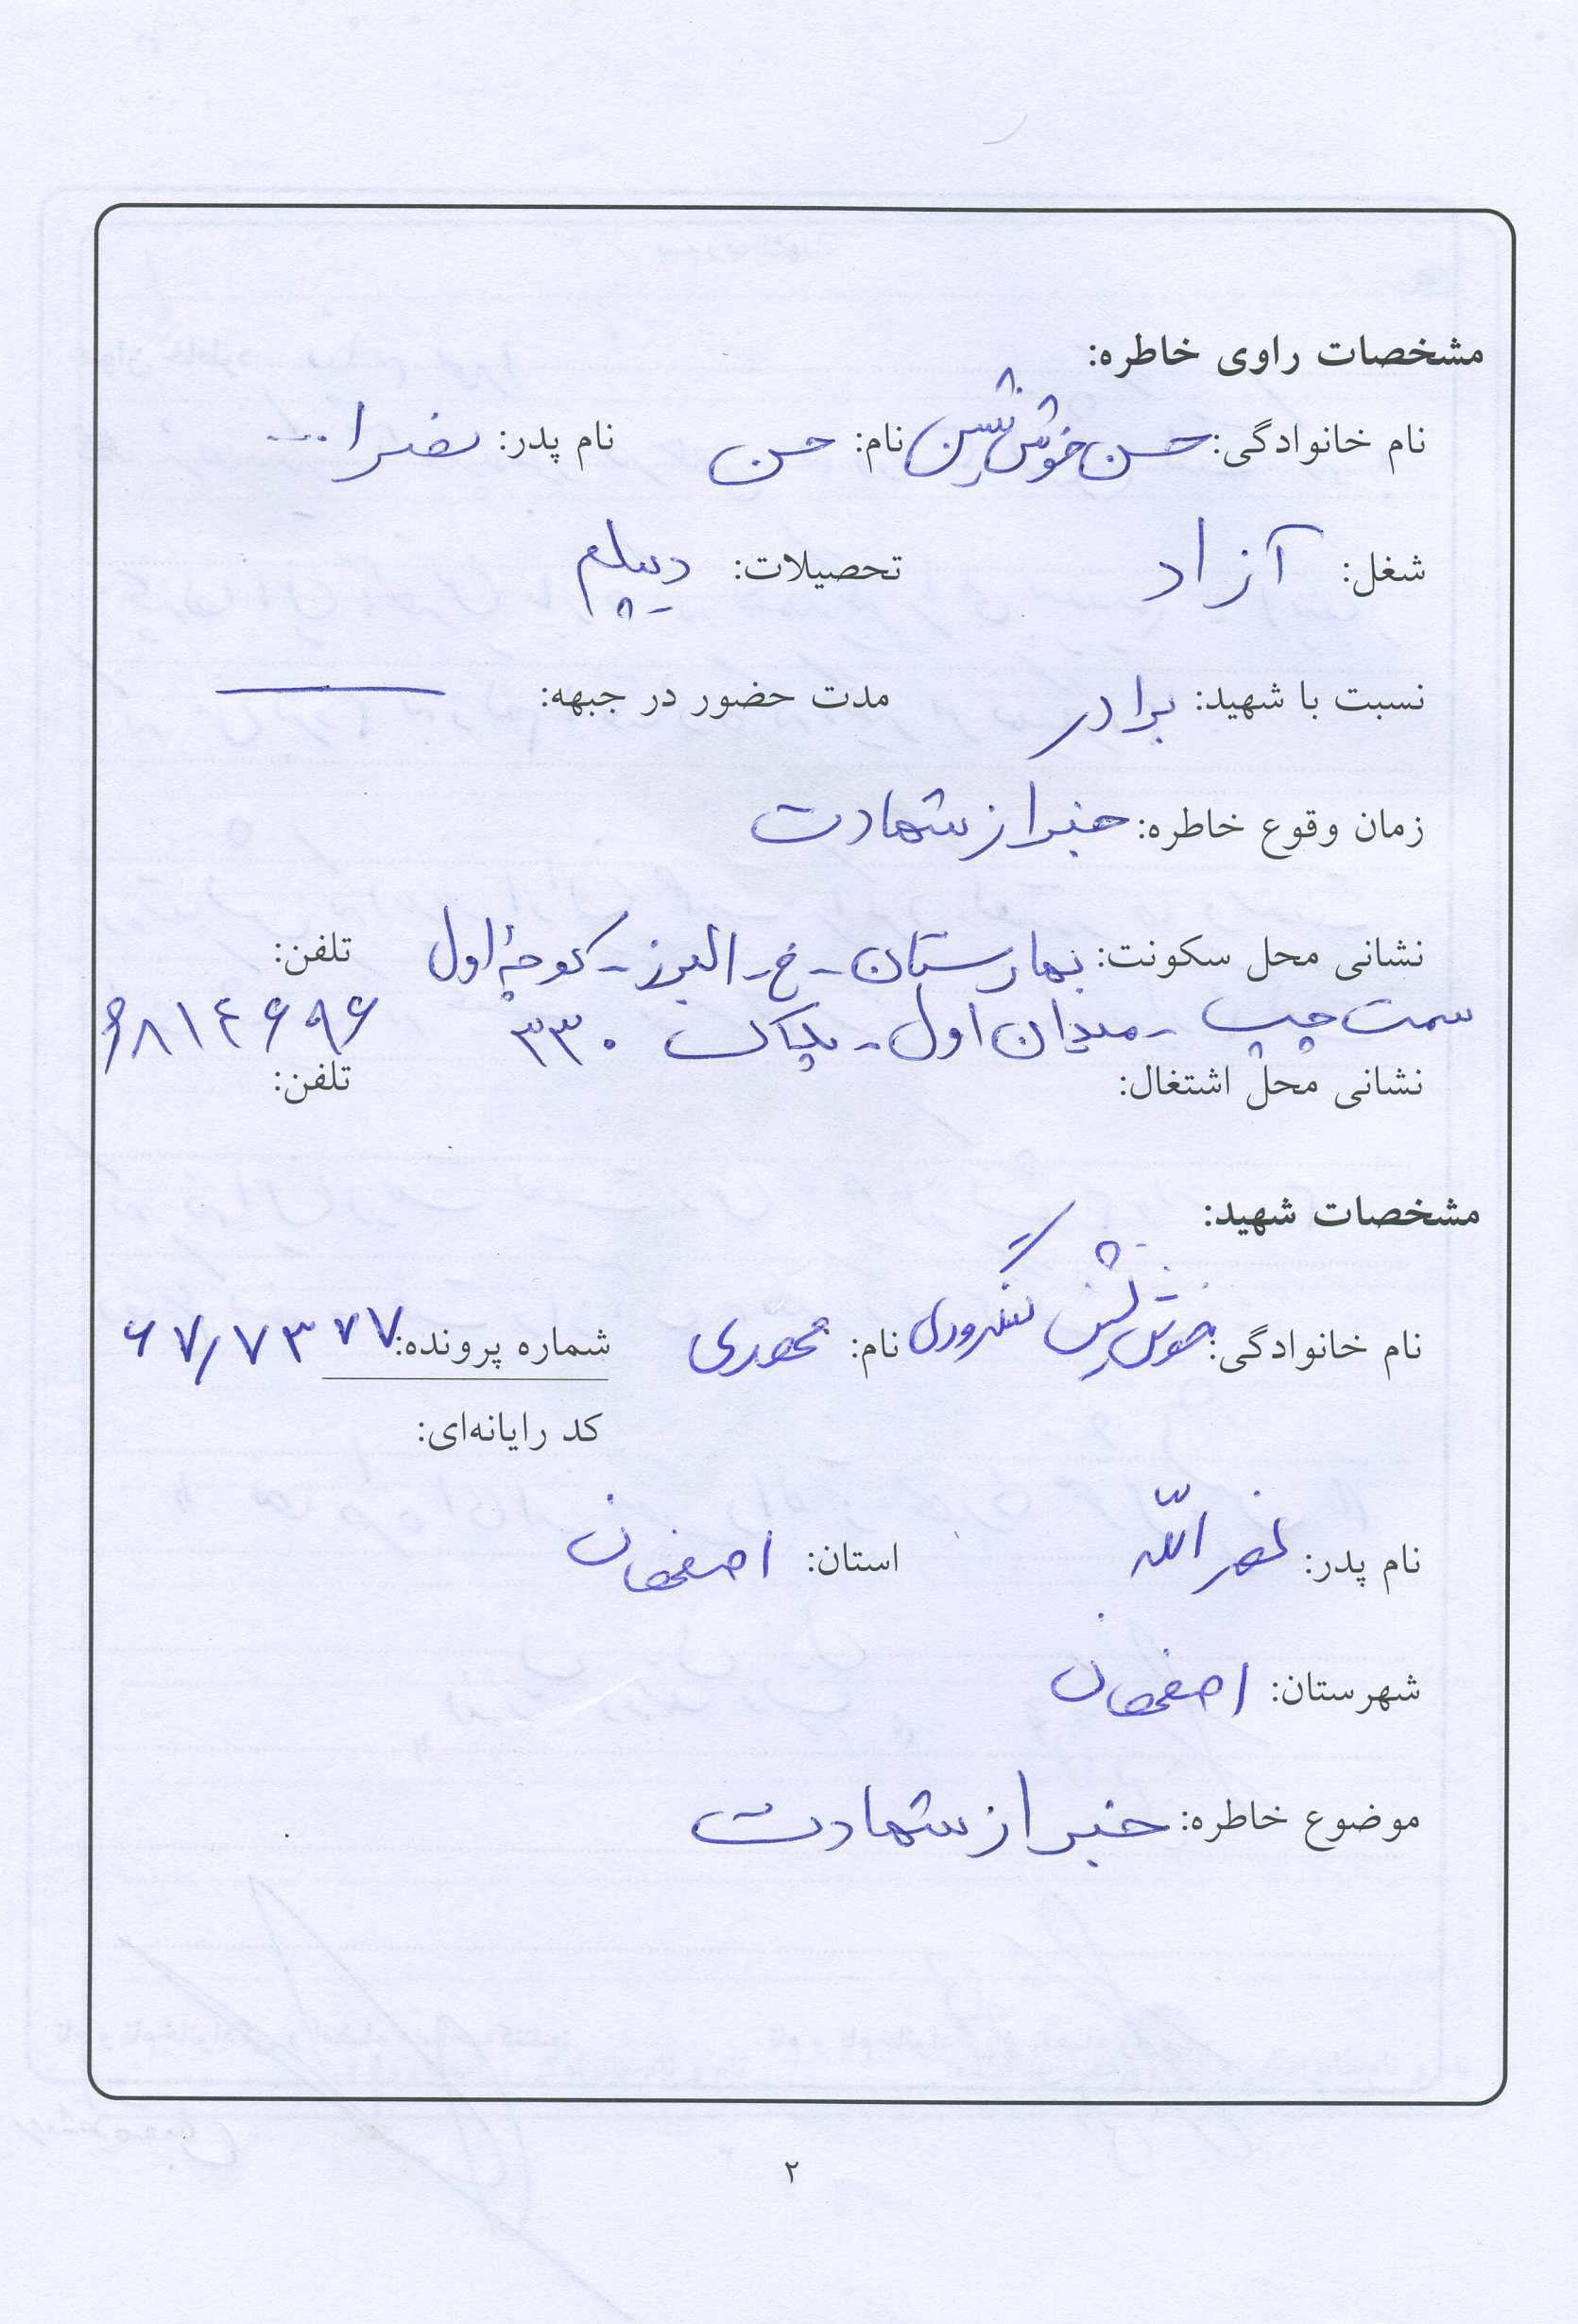 مشخصات راوی خاطره:
نام خانوادگی: حسن خوش نشین نام: حسن نام پدر: نصرا...
شغل: آزاد تحصیلات: دیپلم
نسبت با شهید: برادر مدت حضور در جبهه: ــــــ
زمان وقوع خاطره: خبر از شهادت
نشانی محل سکونت: بهارستان - خ - البرز - کوچه اول تلفن:
سمت چپ - میدان اول - پلاک ۳۳۰ ۶۸۱۴۶۹۶
نشانی محل اشتغال: تلفن:
مشخصات شهید:
نام خانوادگی: خوش نشین لنگرودی نام: مهدی شماره پرونده: ۶۷/۷۳۷۷
کد رایانه‌ای:
نام پدر: نصرالله استان: اصفهان
شهرستان: اصفهان
موضوع خاطره: خبر از شهادت
۲